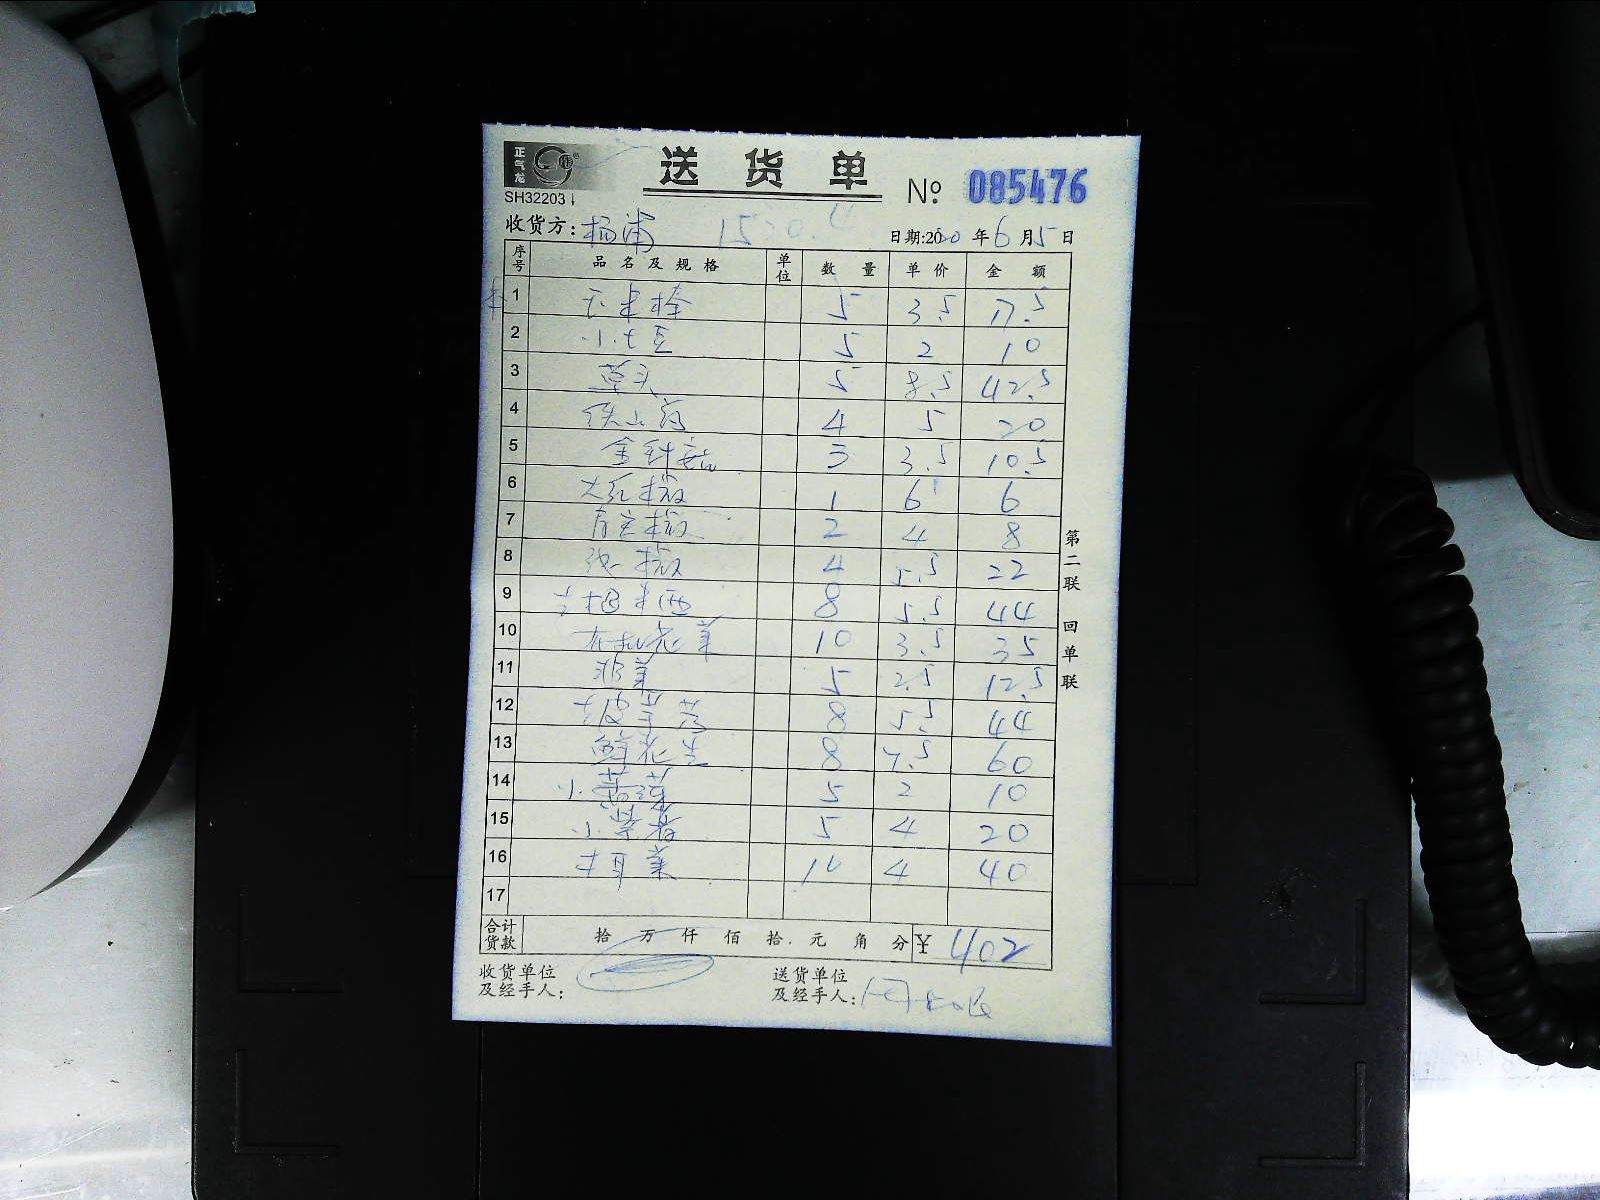 正气龙
送货单
SH32203
No. 085476
收货方: 杨浦 1530.4
日期:2020年6月5日
序号 品名及规格 单位 数量 单价 金额
1 玉米棒 5 3.5 17.5
2 小土豆 5 2 10
3 草头 5 8.5 42.5
4 铁山药 4 5 20
5 金针菇 3 3.5 10.5
6 大红椒 1 6 6
7 青尖椒 2 4 8
8 线椒 4 5.5 22
9 8 5.5 44
10 10 3.5 35
11 5 2.5 12.5
12 8 5.5 44
13 鲜花生 8 7.5 60
14 5 2 10
15 5 4 20
16 10 4 40
17
合计货款 拾 万 仟 佰 拾 元 角 分 ¥ 402
收货单位及经手人:
送货单位及经手人:
第二联 回单联